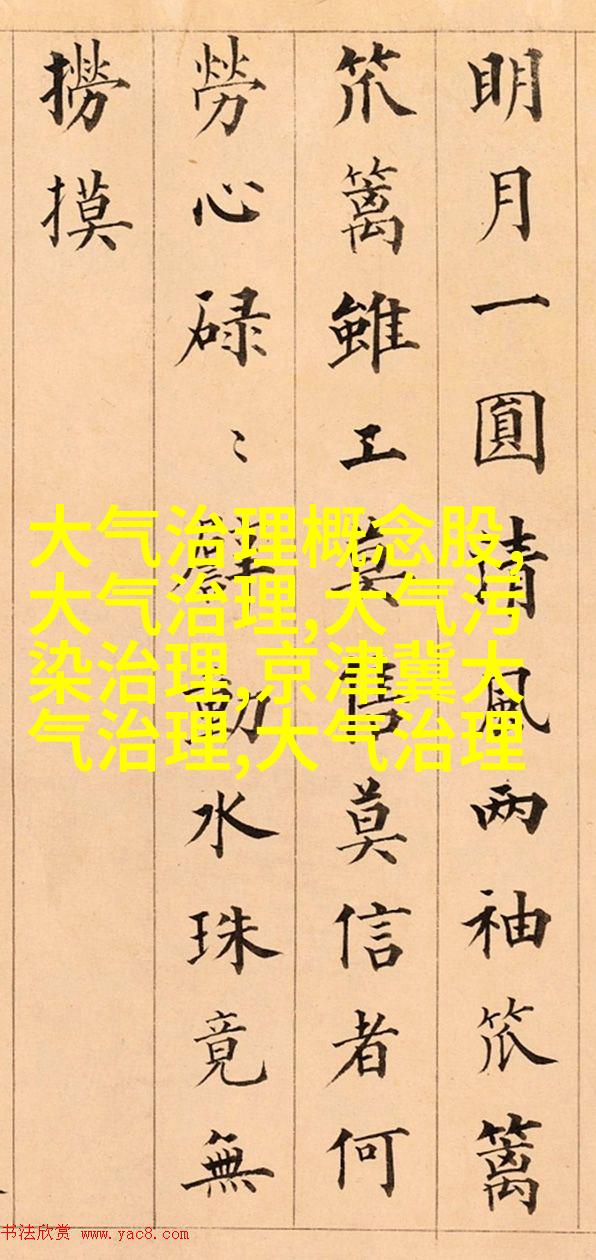 明月一圓清風两袖笊篱
笊篱雖工莫售莫信者何
勞心碌〻動水珠竟無
撈摸
大气治理概念股,
大气治理,大气污
染治理,京津冀大
气治理,大气治理
书法欣赏 www.yac8.com